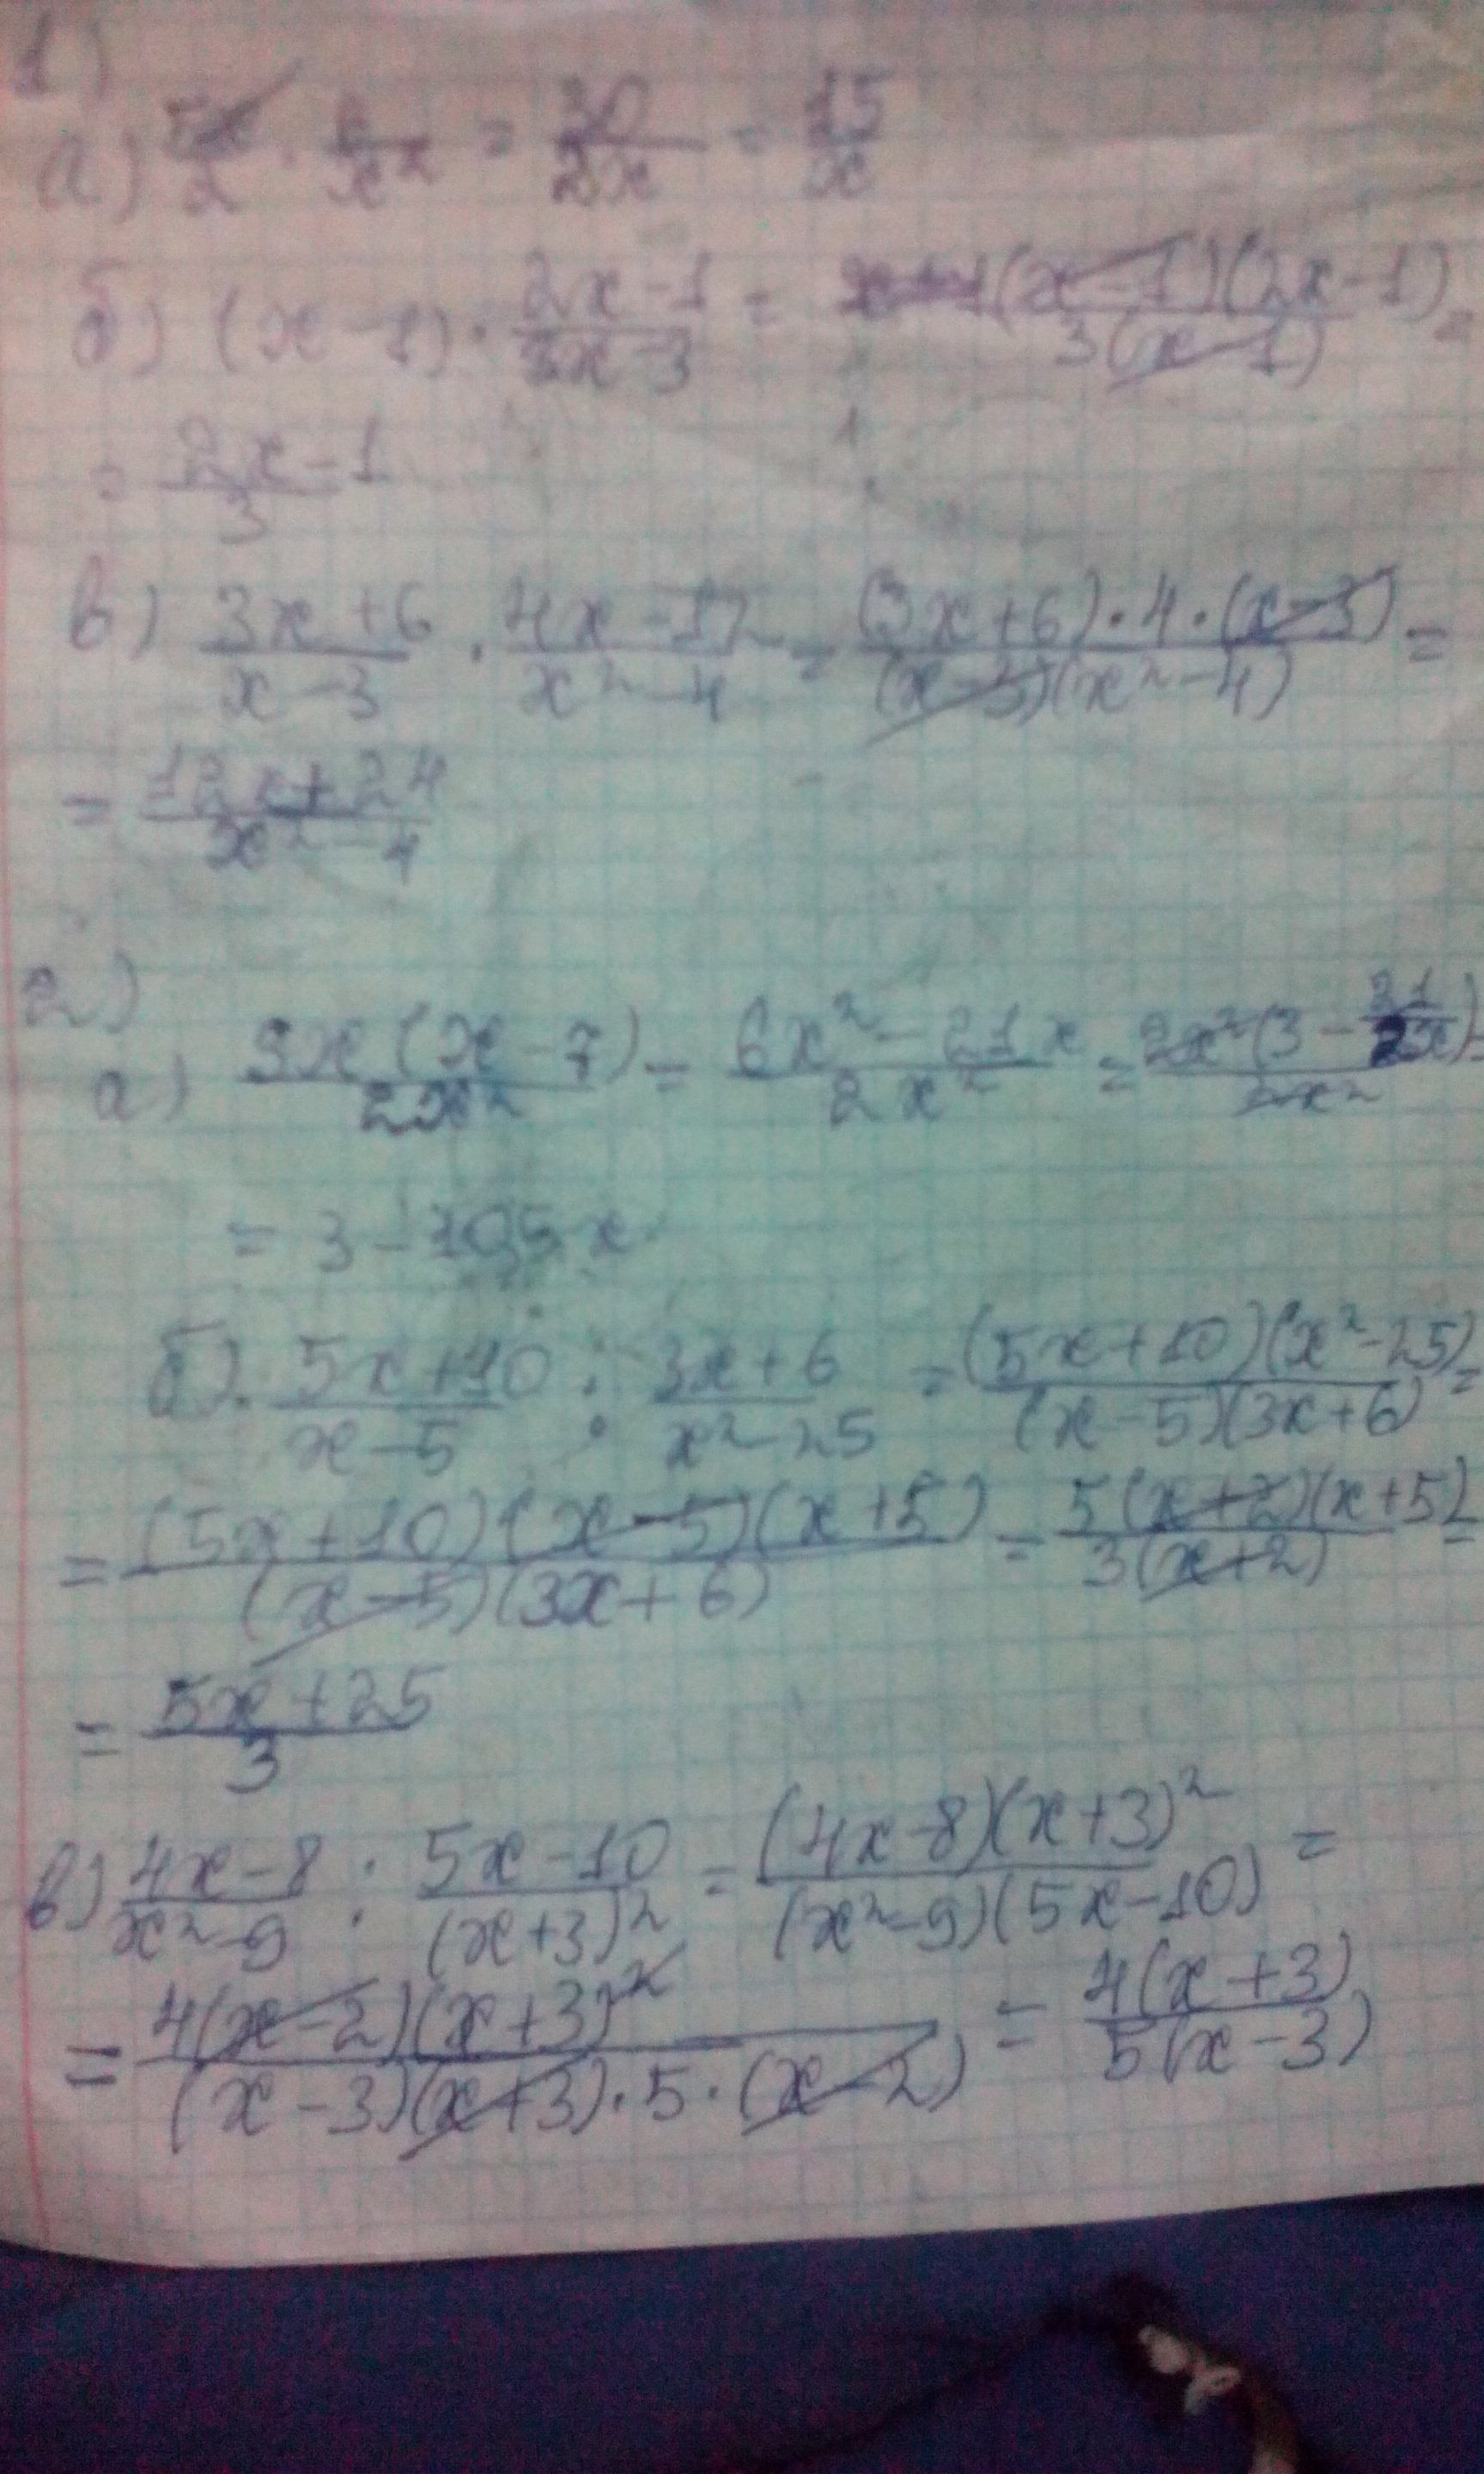 1)
а) 5x/2 · 6/x² = 30/2x = 15/x
б) (x-1) · (2x-1)/(3x-3) = (x-1)(2x-1)/3(x-1) =
= (2x-1)/3
в) (3x+6)/(x-3) · (4x-12)/(x²-4) = (3x+6)·4·(x-3)/(x-3)(x²-4) =
= (12x+24)/(x²-4)
2)
а) 3x(x-7)/2x² = (6x²-21x)/2x² = 2x²(3-21/2x)/2x² =
= 3-10,5x
б) (5x+10)/(x-5) : (3x+6)/(x²-25) = (5x+10)(x²-25)/(x-5)(3x+6) =
= (5x+10)(x-5)(x+5)/(x-5)(3x+6) = 5(x+2)(x+5)/3(x+2) =
= (5x+25)/3
в) (4x-8)/(x²-9) : (5x-10)/(x+3)² = (4x-8)(x+3)²/(x²-9)(5x-10) =
= 4(x-2)(x+3)²/(x-3)(x+3)·5·(x-2) = 4(x+3)/5(x-3)